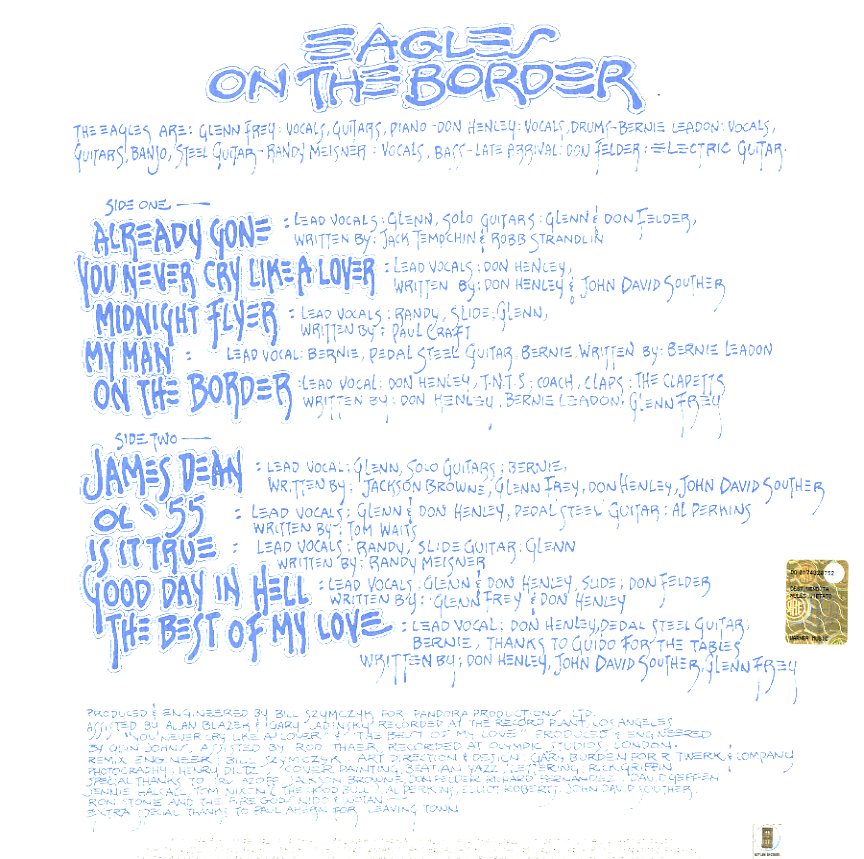 EAGLES
ON THE BORDER
THE EAGLES ARE: GLENN FREY: VOCALS, GUITARS, PIANO - DON HENLEY: VOCALS, DRUMS - BERNIE LEADON: VOCALS,
GUITARS, BANJO, STEEL GUITAR - RANDY MEISNER: VOCALS, BASS - LATE ARRIVAL: DON FELDER: ELECTRIC GUITAR.
SIDE ONE —
ALREADY GONE : LEAD VOCALS: GLENN, SOLO GUITARS: GLENN & DON FELDER,
WRITTEN BY: JACK TEMPCHIN & ROBB STRANDLIN
YOU NEVER CRY LIKE A LOVER : LEAD VOCALS: DON HENLEY,
WRITTEN BY: DON HENLEY & JOHN DAVID SOUTHER
MIDNIGHT FLYER : LEAD VOCALS: RANDY, SLIDE: GLENN,
WRITTEN BY: PAUL CRAFT
MY MAN : LEAD VOCAL: BERNIE, PEDAL STEEL GUITAR: BERNIE, WRITTEN BY: BERNIE LEADON
ON THE BORDER : LEAD VOCAL: DON HENLEY, T.N.T.S: COACH, CLAPS: THE CLAPETTS
WRITTEN BY: DON HENLEY, BERNIE LEADON, GLENN FREY
SIDE TWO —
JAMES DEAN : LEAD VOCAL: GLENN, SOLO GUITARS: BERNIE,
WRITTEN BY: JACKSON BROWNE, GLENN FREY, DON HENLEY, JOHN DAVID SOUTHER
OL '55 : LEAD VOCALS: GLENN & DON HENLEY, PEDAL STEEL GUITAR: AL PERKINS
WRITTEN BY: TOM WAITS
IS IT TRUE : LEAD VOCALS: RANDY, SLIDE GUITAR: GLENN
WRITTEN BY: RANDY MEISNER
GOOD DAY IN HELL : LEAD VOCALS: GLENN & DON HENLEY, SLIDE: DON FELDER
WRITTEN BY: GLENN FREY & DON HENLEY
THE BEST OF MY LOVE : LEAD VOCAL: DON HENLEY, PEDAL STEEL GUITAR:
BERNIE, THANKS TO GUIDO FOR THE TABLES
WRITTEN BY: DON HENLEY, JOHN DAVID SOUTHER, GLENN FREY
PRODUCED & ENGINEERED BY BILL SZYMCZYK FOR PANDORA PRODUCTIONS LTD.
ASSISTED BY ALLAN BLAZEK & GARY LADINSKY RECORDED AT THE RECORD PLANT, LOS ANGELES
"YOU NEVER CRY LIKE A LOVER" & "THE BEST OF MY LOVE" PRODUCED & ENGINEERED
BY GLYN JOHNS, ASSISTED BY ROD THAER, RECORDED AT OLYMPIC STUDIOS, LONDON.
REMIX ENGINEER: BILL SZYMCZYK ART DIRECTION & DESIGN: GARY BURDEN FOR R. TWERK & COMPANY
PHOTOGRAPHY: HENRY DILTZ COVER PAINTING: BEATIAN YAZZ, LETTERING: RICK GRIFFIN
SPECIAL THANKS TO: IRV AZOFF, JACKSON BROWNE, DON FELDER, RICHARD FERNANDEZ, DAVID GEFFEN
TOM NIXON (THE KOOD BILL) AL PERKINS, ELLIOT ROBERTS, JOHN DAVID SOUTHER
RON STONE AND THE FIRE GODS NIDO & WOTAN
EXTRA SPECIAL THANKS TO PAUL AHERN FOR LEAVING TOWN
WARNER MUSIC